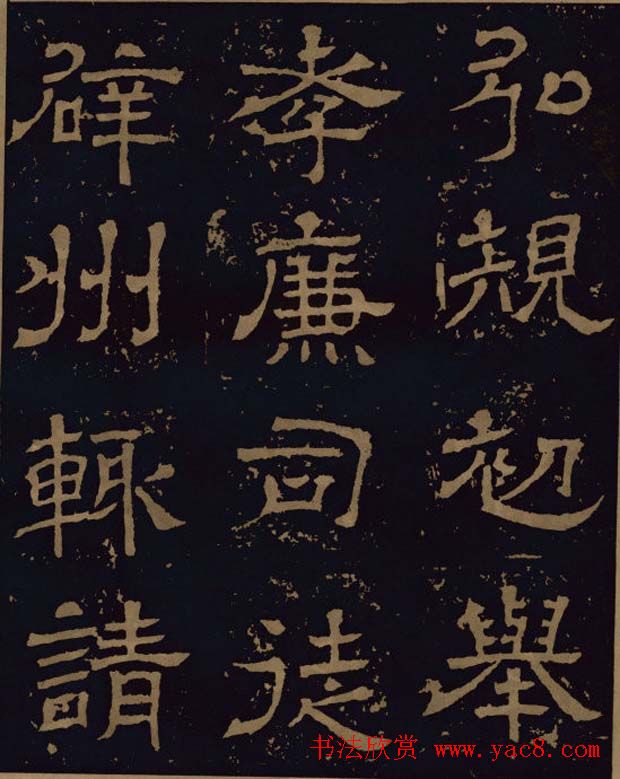 弘規初舉
孝廉司徒
辟州輒請
书法欣赏 www.yac8.com